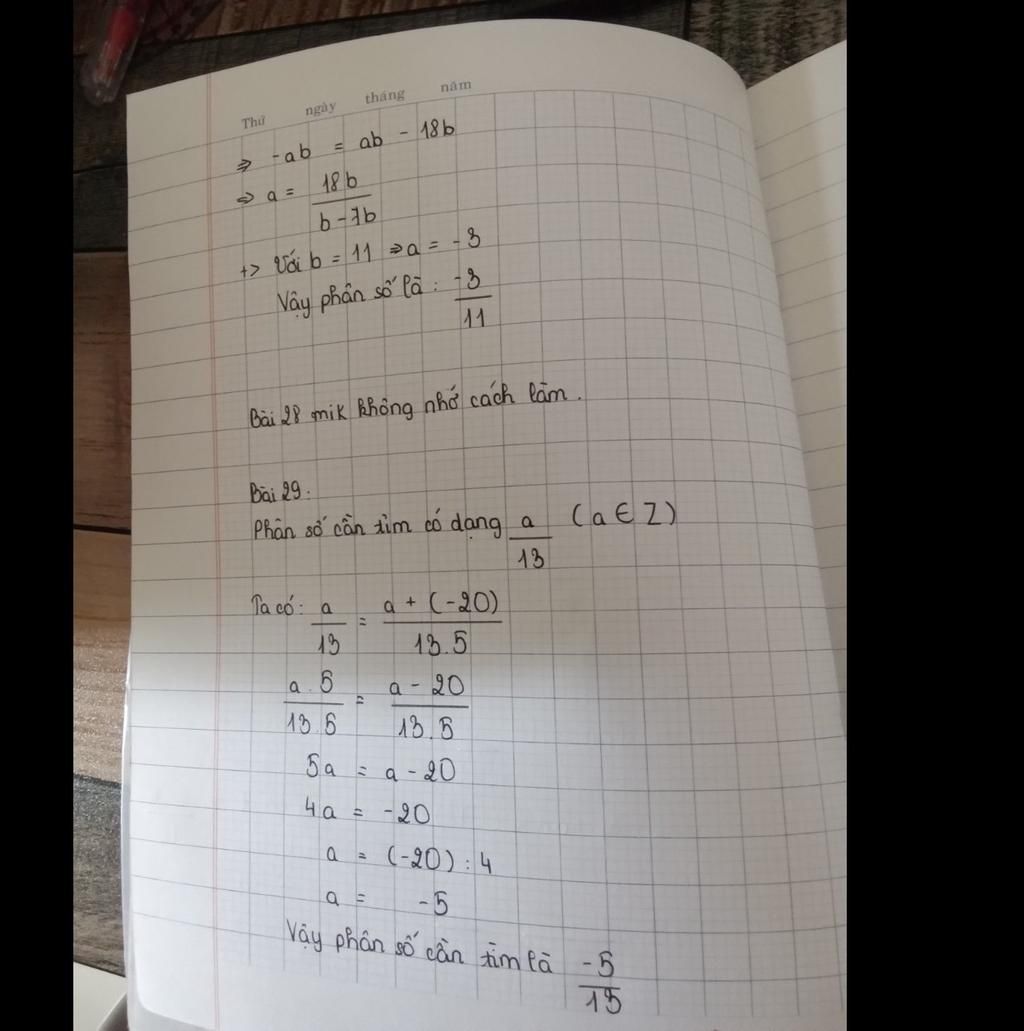 Thứ ngày tháng năm
=> -ab = ab - 18b
=> a = 18b / b-7b
+> Với b = 11 => a = -3
Vậy phân số là: -3/11
Bài 28 mik không nhớ cách làm.
Bài 29:
Phân số cần tìm có dạng a/13 (a ∈ Z)
Ta có: a/13 = a + (-20) / 13.5
a.5 / 13.5 = a - 20 / 13.5
5a = a - 20
4a = -20
a = (-20) : 4
a = -5
Vậy phân số cần tìm là -5/13